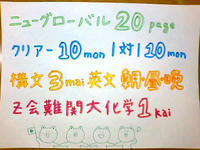 ニューグローバル 20 page
クリアー 10 mon / 対 / 10 mon
構文 3 mai 英文 朝・昼・晩
Z会難関大化学 1 kai